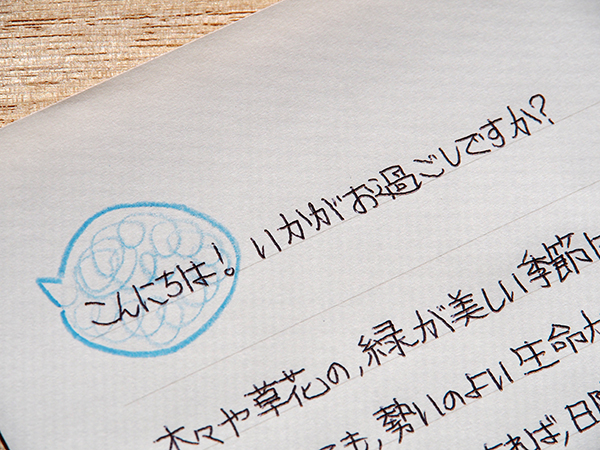 こんにちは! いかがお過ごしですか?
木々や草花の,緑が美しい季節に
も,勢いのよい生命
れば,日